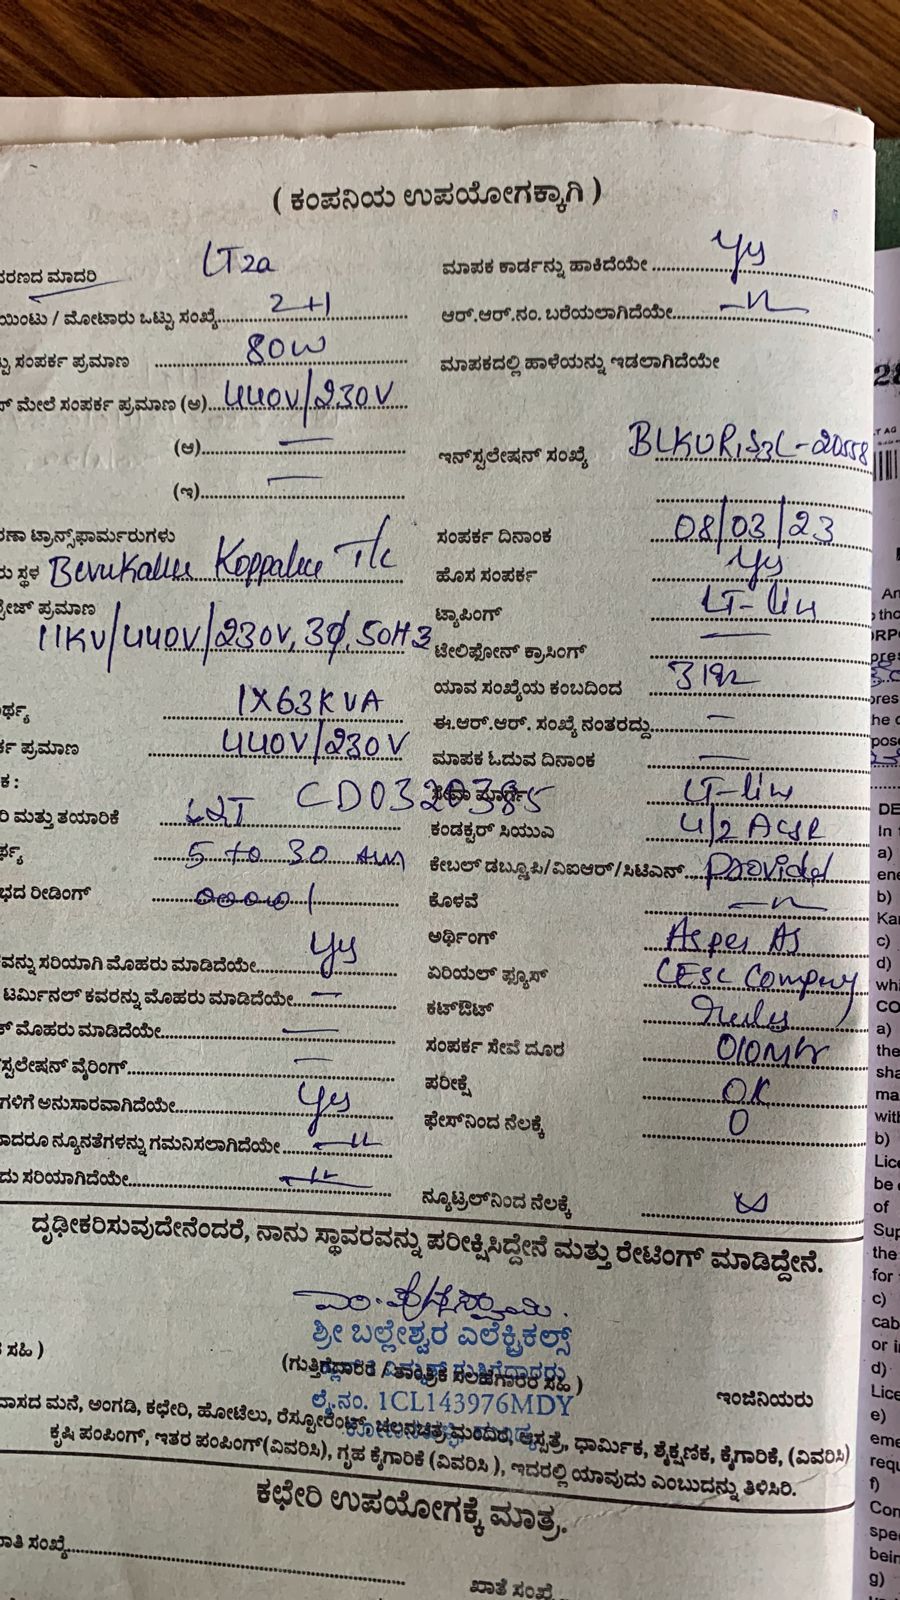 ( ಕಂಪನಿಯ ಉಪಯೋಗಕ್ಕಾಗಿ )
ರಣದ ಮಾದರಿ LT2a
ಯಿಂಟು / ಮೋಟಾರು ಒಟ್ಟು ಸಂಖ್ಯೆ 2+1
ಸಂಪರ್ಕ ಪ್ರಮಾಣ 80W
ಮೇಲೆ ಸಂಪರ್ಕ ಪ್ರಮಾಣ (ಅ) 440V/230V
(ಆ) —
(ಇ) —
ಟ್ರಾನ್ಸ್‌ಫಾರ್ಮರುಗಳು
ಸ್ಥಳ Koppalu T/c
ಪ್ರಮಾಣ
11KV/440V/230V, 3Ø, 50H3
1X63KVA
ಪ್ರಮಾಣ 440V/230V
ಕ :
CD0320385
ರಿ ಮತ್ತು ತಯಾರಿಕೆ L&T
5 to 30
ಭದ ರೀಡಿಂಗ್ 00000/
ವನ್ನು ಸರಿಯಾಗಿ ಮೊಹರು ಮಾಡಿದೆಯೇ Yes
ಟರ್ಮಿನಲ್ ಕವರನ್ನು ಮೊಹರು ಮಾಡಿದೆಯೇ —
ಮೊಹರು ಮಾಡಿದೆಯೇ —
ಸ್ಟಲೇಷನ್ ವೈರಿಂಗ್ —
ಗಳಿಗೆ ಅನುಸಾರವಾಗಿದೆಯೇ Yes
ಾದರೂ ನ್ಯೂನತೆಗಳನ್ನು ಗಮನಿಸಲಾಗಿದೆಯೇ —"—
ದು ಸರಿಯಾಗಿದೆಯೇ —"—
ಮಾಪಕ ಕಾರ್ಡನ್ನು ಹಾಕಿದೆಯೇ Yes
ಆರ್.ಆರ್.ನಂ. ಬರೆಯಲಾಗಿದೆಯೇ —"—
ಮಾಪಕದಲ್ಲಿ ಹಾಳೆಯನ್ನು ಇಡಲಾಗಿದೆಯೇ
ಇನ್‌ಸ್ಟಲೇಷನ್ ಸಂಖ್ಯೆ 20558
ಸಂಪರ್ಕ ದಿನಾಂಕ 08/03/23
ಹೊಸ ಸಂಪರ್ಕ Yes
ಟ್ಯಾಪಿಂಗ್ LT-line
ಟೇಲಿಫೋನ್ ಕ್ರಾಸಿಂಗ್ —
ಯಾವ ಸಂಖ್ಯೆಯ ಕಂಬದಿಂದ
ಈ.ಆರ್.ಆರ್. ಸಂಖ್ಯೆ ನಂತರದ್ದು —
ಮಾಪಕ ಓದುವ ದಿನಾಂಕ —
ಸೇವಾ ಮಾರ್ಗ LT-line
ಕಂಡಕ್ಟರ್ ಸಿಯುಎ 4/2 ACSR
ಕೇಬಲ್ ಡಬ್ಲ್ಯೂಪಿ/ವಿಐಆರ್/ಸಿಟಿಎನ್ provided
ಕೊಳವೆ —"—
ಅರ್ಥಿಂಗ್ As per As
ಏರಿಯಲ್ ಫ್ಯೂಸ್ CESC Company
ಕಟ್‌ಔಟ್
ಸಂಪರ್ಕ ಸೇವೆ ದೂರ 010Mtr
ಪರೀಕ್ಷೆ OK
ಫೇಸ್‌ನಿಂದ ನೆಲಕ್ಕೆ 0
ನ್ಯೂಟ್ರಲ್‌ನಿಂದ ನೆಲಕ್ಕೆ
ದೃಢೀಕರಿಸುವುದೇನೆಂದರೆ, ನಾನು ಸ್ಥಾವರವನ್ನು ಪರೀಕ್ಷಿಸಿದ್ದೇನೆ ಮತ್ತು ರೇಟಿಂಗ್ ಮಾಡಿದ್ದೇನೆ.
ಶ್ರೀ ಬಲ್ಲೇಶ್ವರ ಎಲೆಕ್ಟ್ರಿಕಲ್ಸ್
ಸಹಿ )
(ಗುತ್ತಿಗೆದಾರರ / ತಾಂತ್ರಿಕ ಸಲಹೆಗಾರರ ಸಹಿ )
ಇಂಜಿನಿಯರು
ಲೈ.ನಂ. 1CL143976MDY
ವಾಸದ ಮನೆ, ಅಂಗಡಿ, ಕಛೇರಿ, ಹೋಟೆಲು, ರೆಸ್ಟೋರೆಂಟ್, ಚಲನಚಿತ್ರ ಮಂದಿರ, ಆಸ್ಪತ್ರೆ, ಧಾರ್ಮಿಕ, ಶೈಕ್ಷಣಿಕ, ಕೈಗಾರಿಕೆ, (ವಿವರಿಸಿ)
ಕೃಷಿ ಪಂಪಿಂಗ್, ಇತರ ಪಂಪಿಂಗ್(ವಿವರಿಸಿ), ಗೃಹ ಕೈಗಾರಿಕೆ (ವಿವರಿಸಿ ), ಇದರಲ್ಲಿ ಯಾವುದು ಎಂಬುದನ್ನು ತಿಳಿಸಿರಿ.
ಕಛೇರಿ ಉಪಯೋಗಕ್ಕೆ ಮಾತ್ರ.
ಾತಿ ಸಂಖ್ಯೆ
ಖಾತೆ ಸಂಖ್ಯೆ